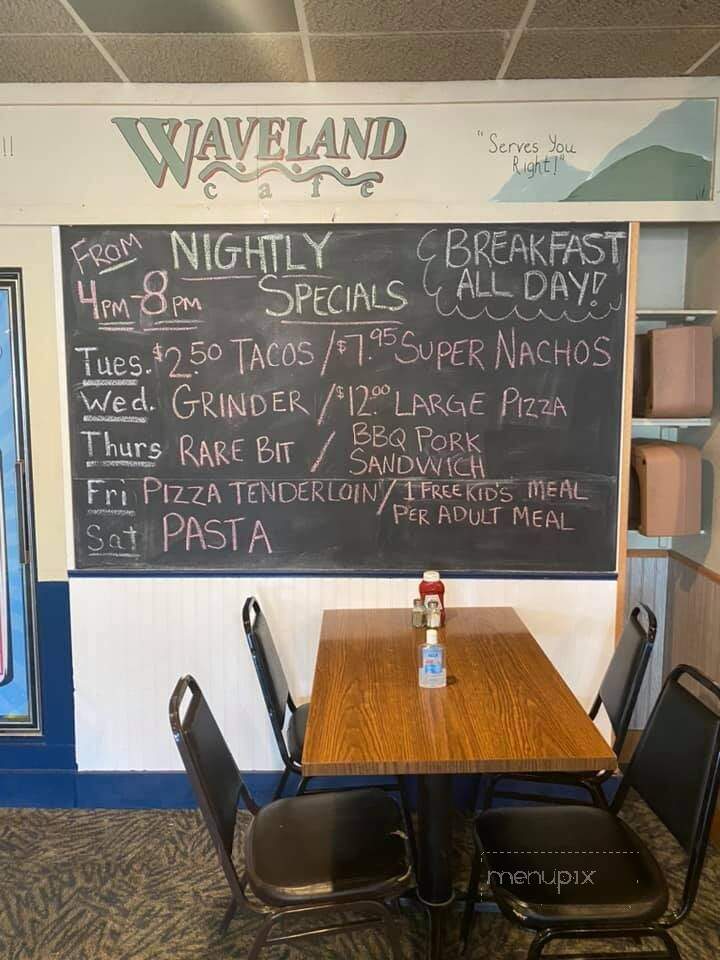 !!
WAVELAND
cafe
"Serves You
Right!"
FROM
4PM-8PM
NIGHTLY
SPECIALS
BREAKFAST
ALL DAY!
Tues. $2.50 TACOS / $7.95 SUPER NACHOS
Wed. GRINDER / $12.00 LARGE PIZZA
Thurs RARE BIT / BBQ PORK
SANDWICH
Fri PIZZA TENDERLOIN / 1 FREE KID'S MEAL
PER ADULT MEAL
Sat PASTA
menupix